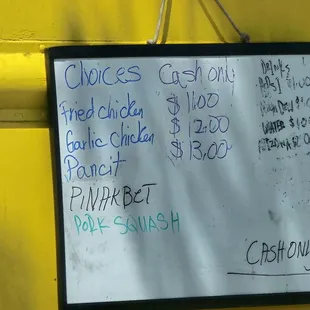 Choices Cash only
Fried chicken $11.00
Garlic Chicken $12.00
Pancit $13.00
PINAKBET
PORK SQUASH
Drinks
WATER $1.00
CASH ONLY